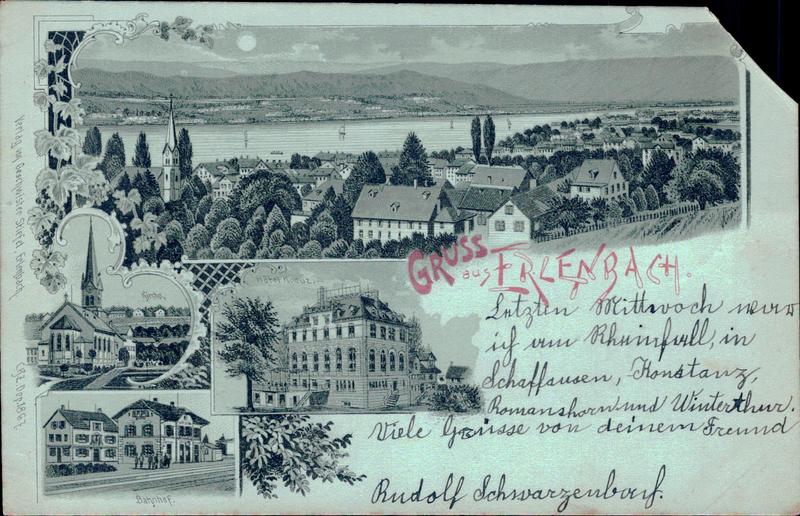 GRUSS aus ERLENBACH.
Letzten Mittwoch war
ich am Rheinfall, in
Schaffausen, Konstanz,
Romanshorn und Winterthur.
Viele Grüsse von deinem Freund
Rudolf Schwarzenbach.
Kirche.
Hotel Kreuz.
Bahnhof.
Verlag von Geschwister Stiefel, Erlenbach.